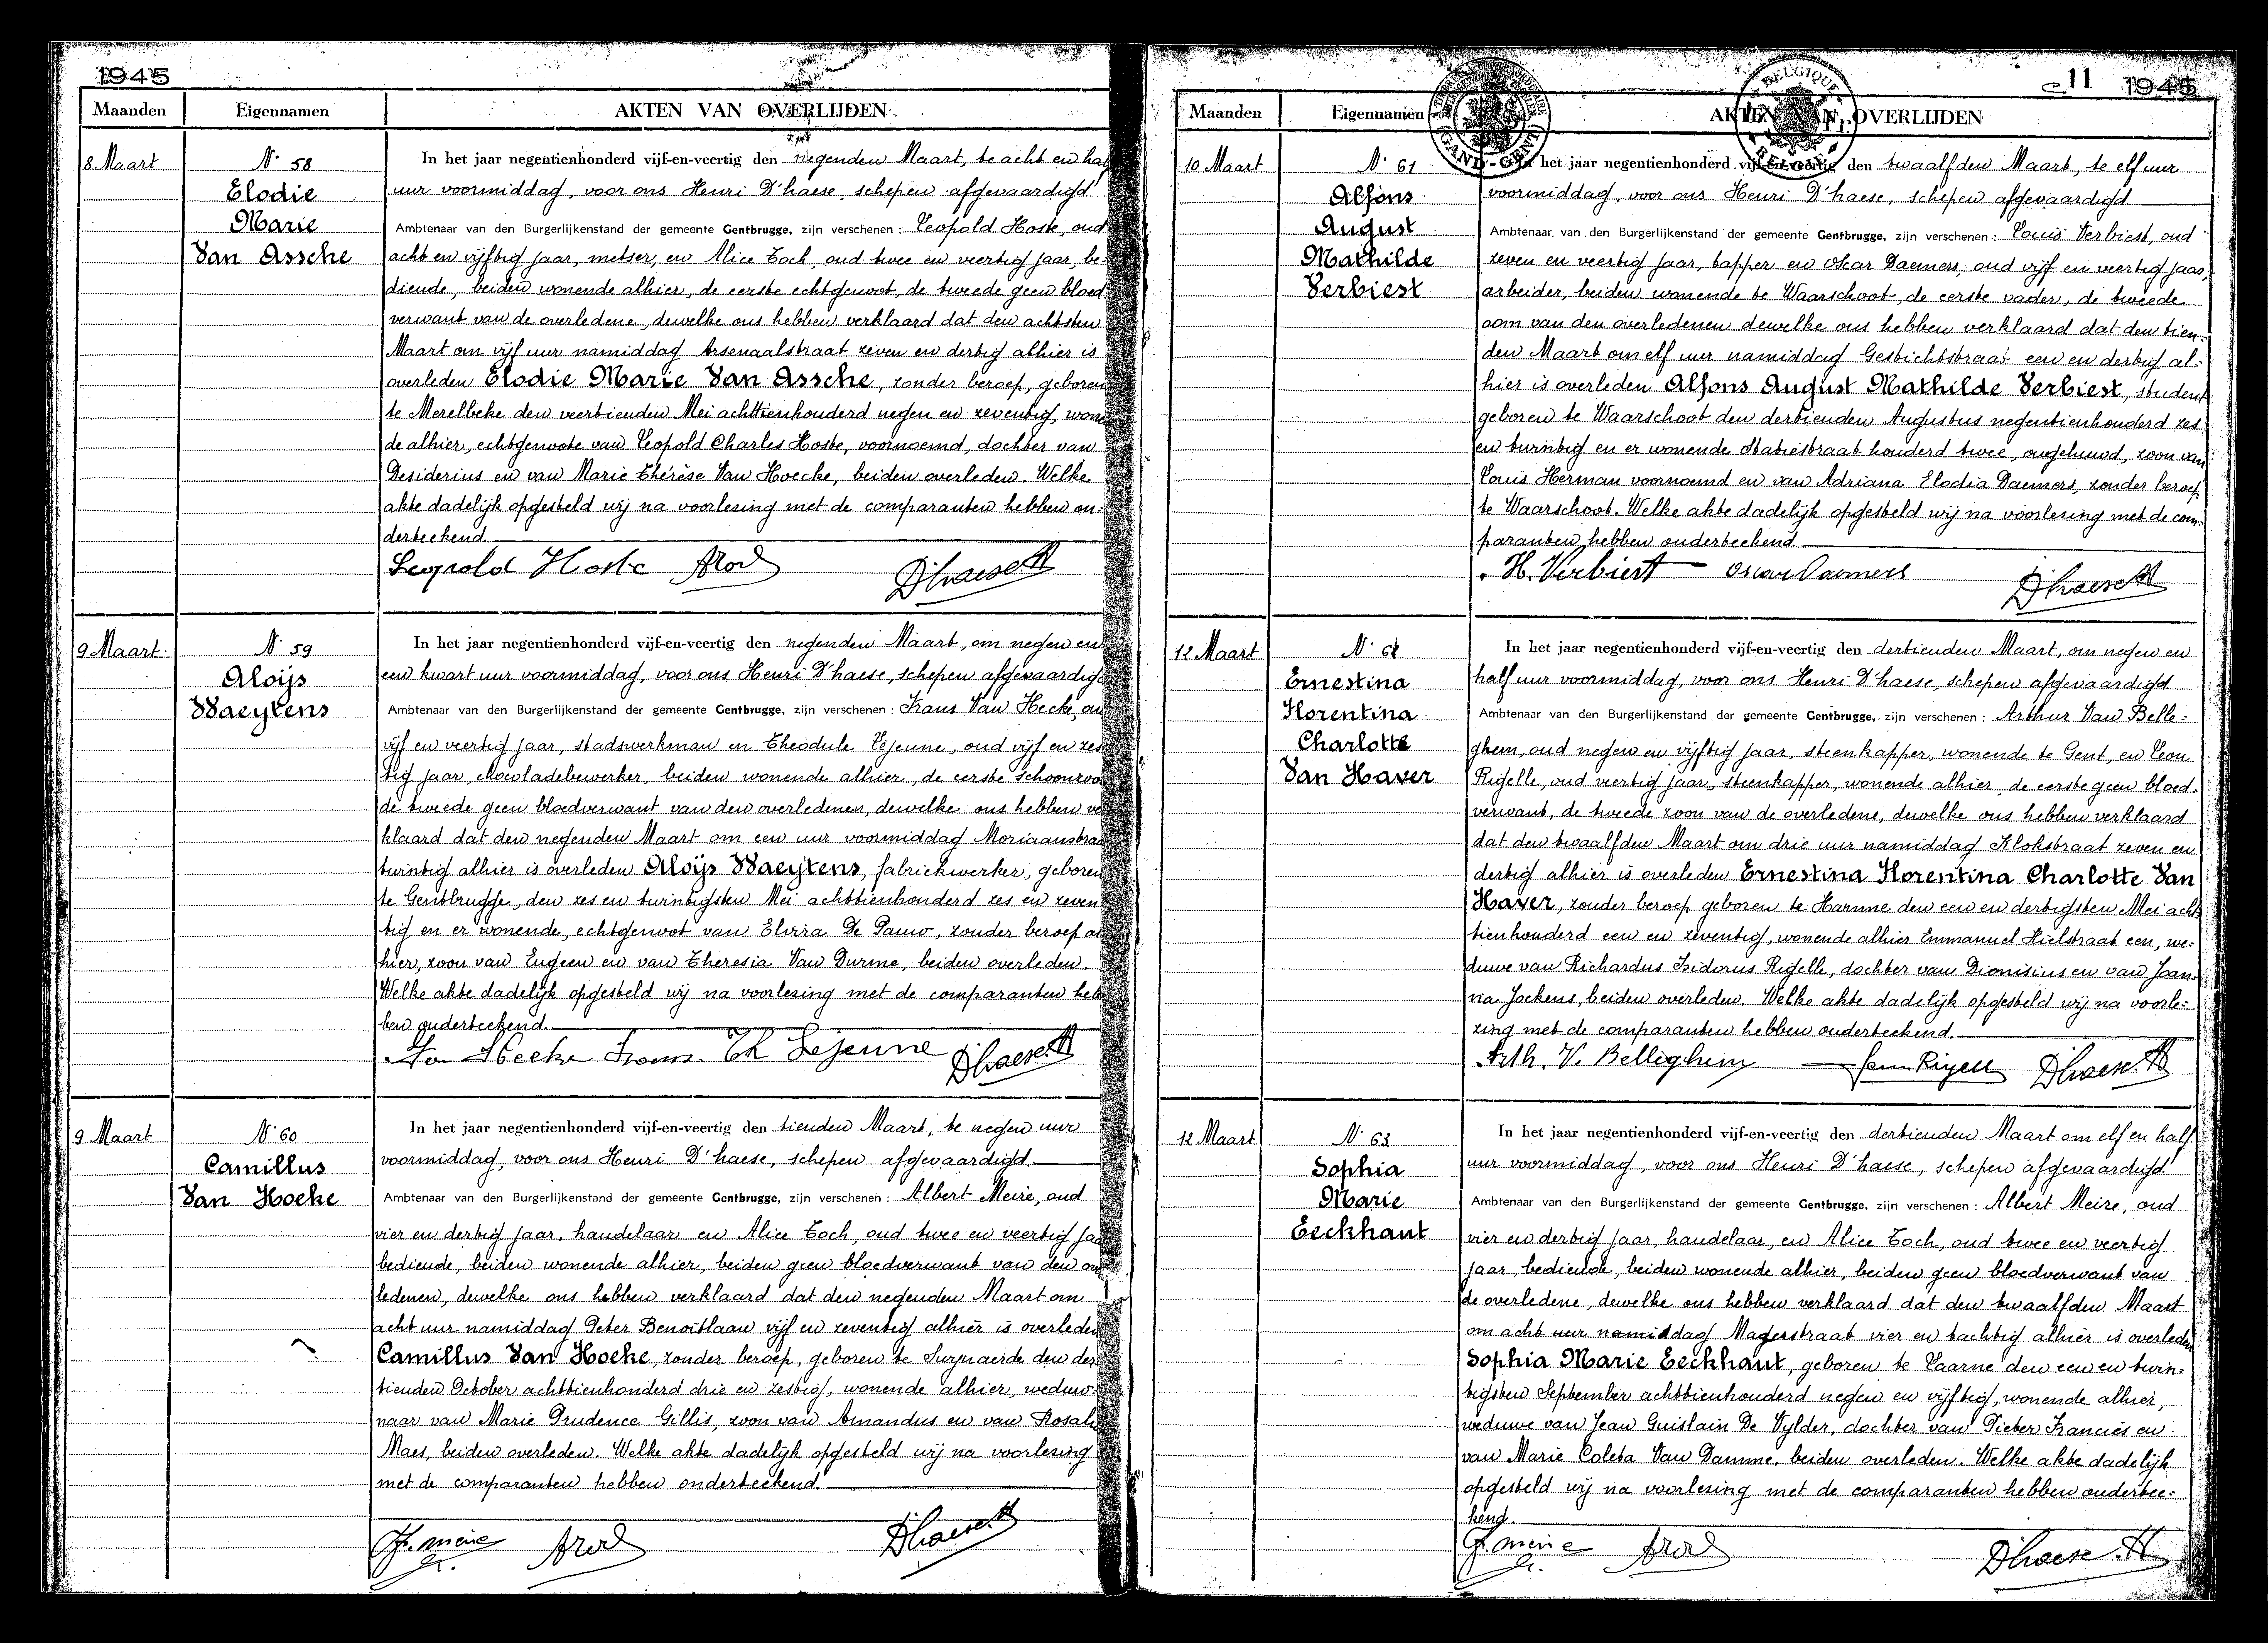 1945
Maanden Eigennamen AKTEN VAN OVERLIJDEN
8 Maart
N.r 58
Elodie
Marie
Van Assche
In het jaar negentienhonderd vijf-en-veertig den negenden Maart, te acht en hal
uur voormiddag, voor ons Henri D'haese, schepen afgevaardigd
Ambtenaar van den Burgerlijkenstand der gemeente Gentbrugge, zijn verschenen: Leopold Hoste, oud
acht en vijftig jaar, metser, en Alice Toch, oud twee en veertig jaar, be-
diende, beiden wonende alhier, de eerste echtgenoot, de tweede geen bloed
verwant van de overledene, dewelke ons hebben verklaard dat den achtsten
Maart om vijf uur namiddag Arsenaalstraat zeven en dertig alhier is
overleden Elodie Marie Van Assche, zonder beroep, geboren
te Merelbeke den veertienden Mei achttienhonderd negen en zeventig, wone
de alhier, echtgenoote van Leopold Charles Hoste, voornoemd, dochter van
Desiderius en van Marie Thérèse Van Hoecke, beiden overleden. Welke
akte dadelijk opgesteld wij na voorlezing met de comparanten hebben on-
derteekend.
Leopold Hoste D'haese H
9 Maart.
N.r 59
Aloijs
Waeytens
In het jaar negentienhonderd vijf-en-veertig den negenden Maart, om negen en
een kwart uur voormiddag, voor ons Henri D'haese, schepen afgevaardigd
Ambtenaar van den Burgerlijkenstand der gemeente Gentbrugge, zijn verschenen: Frans Van Hecke, ou
vijf en veertig jaar, stadswerkman en Theodule Lejeune, oud vijf en zes
tig jaar, chocoladebewerker, beiden wonende alhier, de eerste schoonzoo
de tweede geen bloedverwant van den overledenen, dewelke ons hebben ve
klaard dat den negenden Maart om een uur voormiddag Moriaanstraa
twintig alhier is overleden Aloijs Waeytens, fabriekwerker, geboren
te Gentbrugge, den zes en twintigsten Mei achttienhonderd zes en zeven
tig en er wonende, echtgenoot van Elvira De Pauw, zonder beroep al
hier, zoon van Eugeen en van Theresia Van Durme, beiden overleden.
Welke akte dadelijk opgesteld wij na voorlezing met de comparanten heb
ben onderteekend.
Van Hecke Frans. Th Lejeune D'haese H
9 Maart
N.r 60
Camillus
Van Hoeke
In het jaar negentienhonderd vijf-en-veertig den tienden Maart, te negen uur
voormiddag, voor ons Henri D'haese, schepen afgevaardigd
Ambtenaar van den Burgerlijkenstand der gemeente Gentbrugge, zijn verschenen: Albert Meire, oud
vier en dertig jaar, handelaar en Alice Toch, oud twee en veertig jaa
bediende, beiden wonende alhier, beiden geen bloedverwant van den ov
ledenen, dewelke ons hebben verklaard dat den negenden Maart om
acht uur namiddag Peter Benoitlaan vijf en zeventig alhier is overleden
Camillus Van Hoeke, zonder beroep, geboren te Scynaerde den der
tienden October achttienhonderd drie en zestig, wonende alhier, weduw-
naar van Marie Prudence Gillis, zoon van Amandus en van Rosali
Maes, beiden overleden. Welke akte dadelijk opgesteld wij na voorlezing
met de comparanten hebben onderteekend.
D'haese H
11 1945
BELGIQUE
BELGIE
GAND-GENT
Maanden Eigennamen AKTEN VAN OVERLIJDEN
10 Maart
N.r 61
Alfons
August
Mathilde
Verbiest
In het jaar negentienhonderd vijf-en-veertig den twaalfden Maart, te elf uur
voormiddag, voor ons Henri D'haese, schepen afgevaardigd
Ambtenaar van den Burgerlijkenstand der gemeente Gentbrugge, zijn verschenen: Louis Verbiest, oud
zeven en veertig jaar, tapper en Oscar Daemers, oud vijf en veertig jaar,
arbeider, beiden wonende te Waarschoot, de eerste vader, de tweede
oom van den overledenen dewelke ons hebben verklaard dat den tien-
den Maart om elf uur namiddag Gestichtstraat een en dertig al-
hier is overleden Alfons August Mathilde Verbiest, student
geboren te Waarschoot den dertienden Augustus negentienhonderd zes
en twintig en er wonende Statiestraat honderd twee, ongehuwd, zoon van
Louis Herman voornoemd en van Adriana Elodia Daemers, zonder beroep
te Waarschoot. Welke akte dadelijk opgesteld wij na voorlezing met de com-
paranten hebben onderteekend
H. Verbiest Oscar Daemers D'haese H
12 Maart
N.r 62
Ernestina
Florentina
Charlotte
Van Haver
In het jaar negentienhonderd vijf-en-veertig den dertienden Maart, om negen en
half uur voormiddag, voor ons Henri D'haese, schepen afgevaardigd
Ambtenaar van den Burgerlijkenstand der gemeente Gentbrugge, zijn verschenen: Arthur Van Belle-
ghem, oud negen en vijftig jaar, steenkapper, wonende te Gent, en Leon
Rigelle, oud veertig jaar, steenkapper, wonende alhier, de eerste geen bloed-
verwant, de tweede zoon van de overledene, dewelke ons hebben verklaard
dat den twaalfden Maart om drie uur namiddag Klokstraat zeven en
dertig alhier is overleden Ernestina Florentina Charlotte Van
Haver, zonder beroep geboren te Hamme den een en dertigsten Mei acht
tienhonderd een en zeventig, wonende alhier Emmanuel Hielstraat een, we-
duwe van Richardus Isidorus Rigelle, dochter van Dionisius en van Joan-
na Jockens, beiden overleden. Welke akte dadelijk opgesteld wij na voorle-
zing met de comparanten hebben onderteekend.
Arth. V. Belleghem Leon Rigell D'haese H
12 Maart
N.r 63
Sophia
Marie
Eeckhaut
In het jaar negentienhonderd vijf-en-veertig den dertienden Maart om elf en half
uur voormiddag, voor ons Henri D'haese, schepen afgevaardigd
Ambtenaar van den Burgerlijkenstand der gemeente Gentbrugge, zijn verschenen: Albert Meire, oud
vier en dertig jaar, handelaar, en Alice Toch, oud twee en veertig
jaar, bediende, beiden wonende alhier, beiden geen bloedverwant van
de overledene, dewelke ons hebben verklaard dat den twaalfden Maart
om acht uur namiddag Magerstraat vier en tachtig alhier is overleden
Sophia Marie Eeckhaut, geboren te Laarne den een en twin-
tigsten September achttienhonderd negen en vijftig, wonende alhier,
weduwe van Jean Guislain De Vylder, dochter van Pieter Francies en
van Marie Coleta Van Damme, beiden overleden. Welke akte dadelijk
opgesteld wij na voorlezing met de comparanten hebben ondertee-
kend.
D'haese H